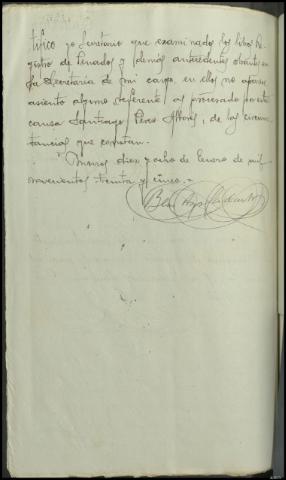 tifico yo Secretario que examinado los libros Re-
gistro de Penados y demás antecedentes obrantes en
la Secretaría de mi cargo, en ellos no aparece
asiento alguno referente al procesado por esta
causa Santiago Pérez, de las circuns-
tancias que constan.
Muros diez y ocho de Enero de mil
novecientos treinta y cinco.-